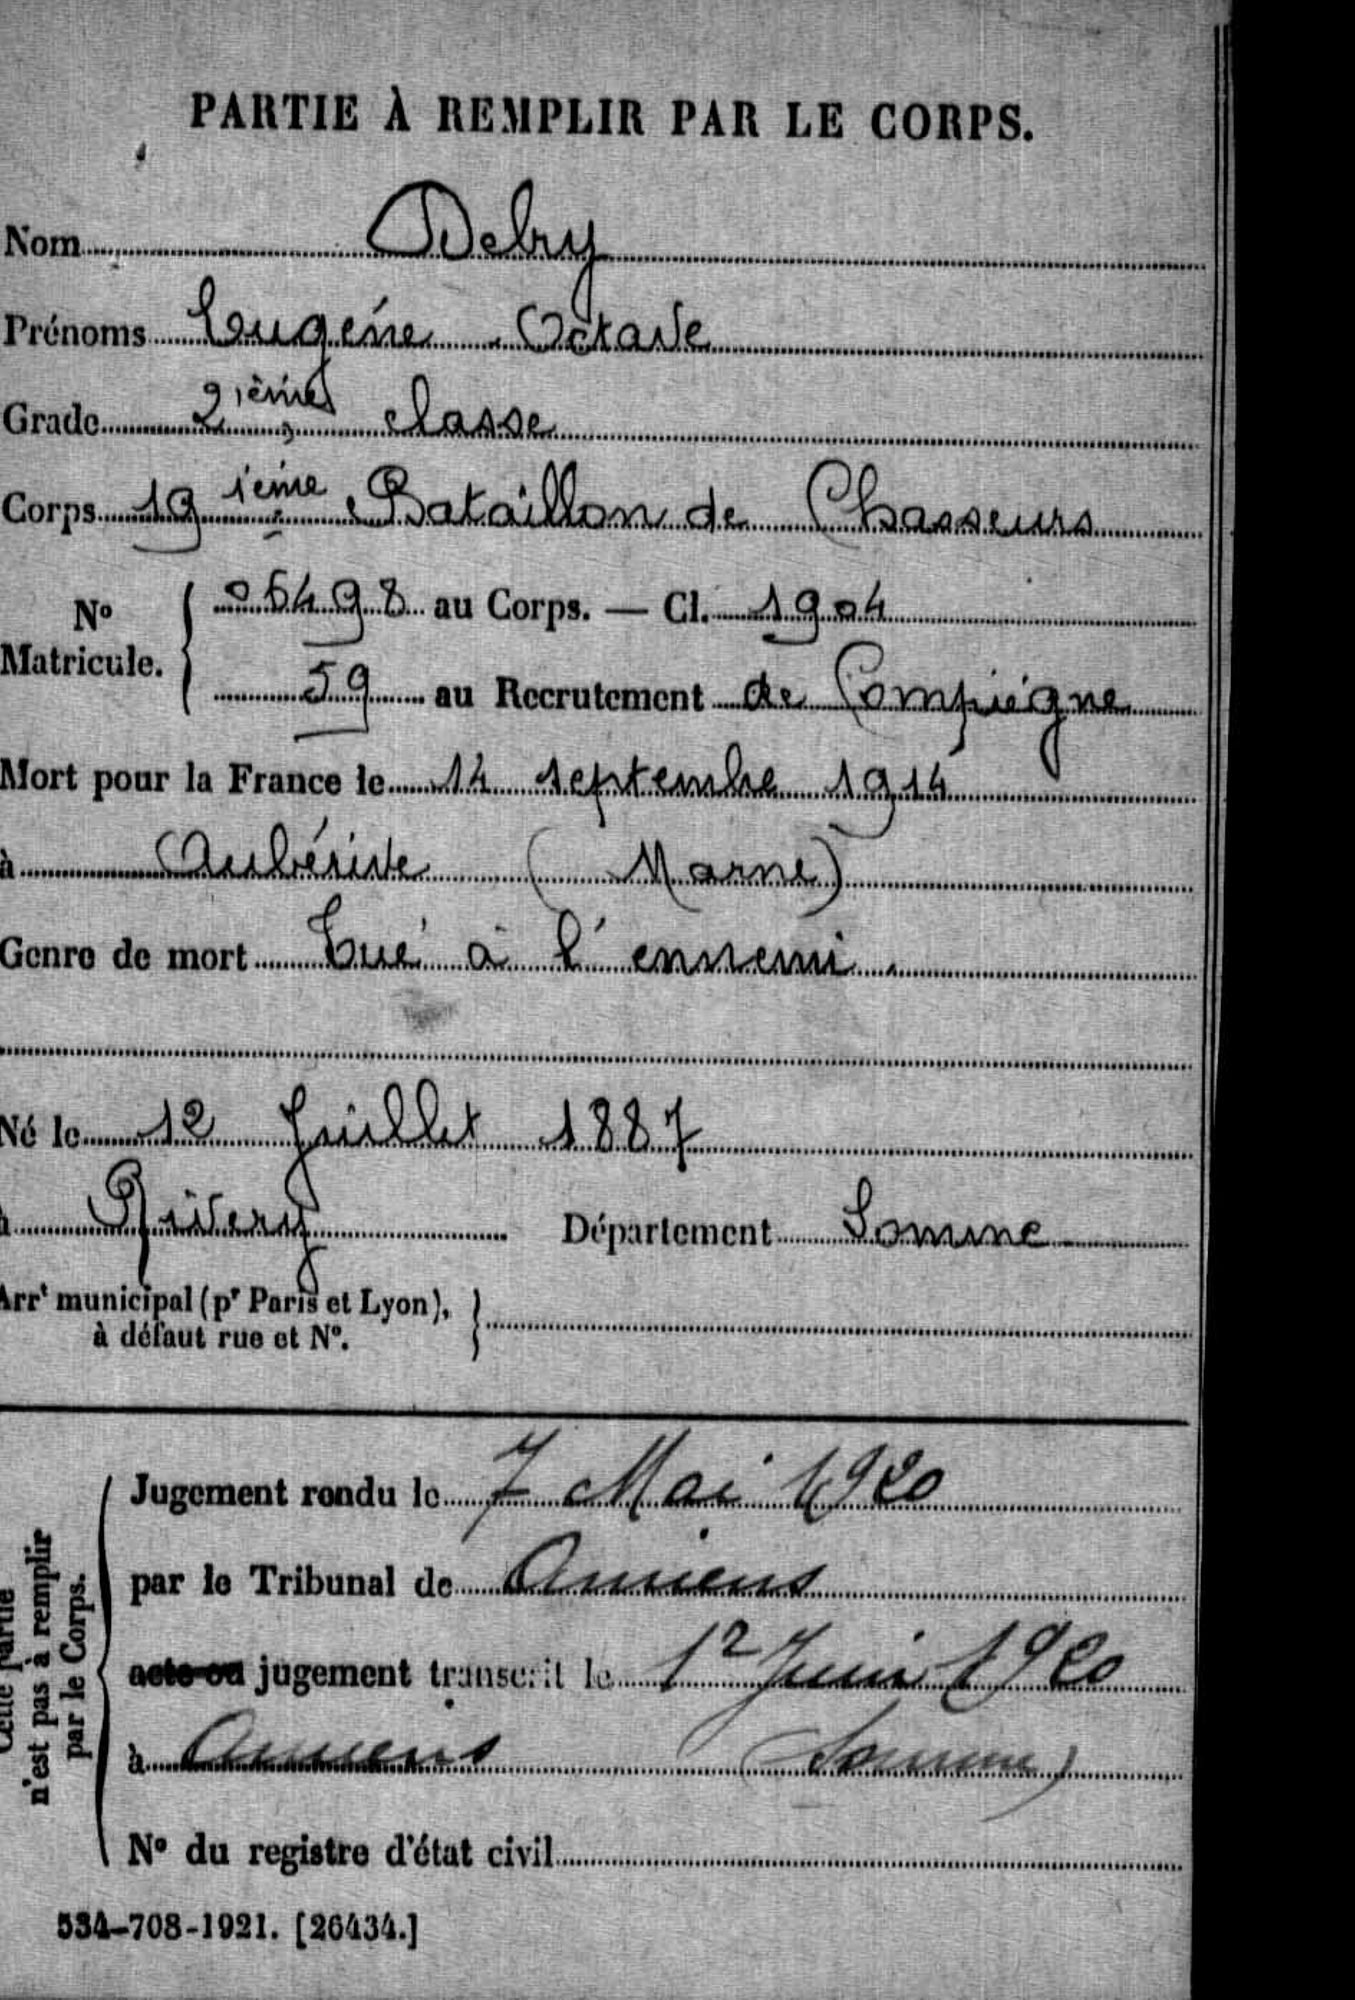 PARTIE À REMPLIR PAR LE CORPS.
Nom Debry
Prénoms Eugéne Octave
Grade 2ième classe
Corps 19ième Bataillon de Chasseurs
N° Matricule. 05498 au Corps. — Cl. 1904
59 au Recrutement de Compiègne
Mort pour la France le 14 septembre 1914
à Aubérive (Marne)
Genre de mort Tué à l'ennemi
Né le 12 Juillet 1887
à Rivery Département Somme
Arrt municipal (pr Paris et Lyon),
à défaut rue et N°.
Cette partie
n'est pas à remplir
par le Corps.
Jugement rondu le 7 Mai 1920
par le Tribunal de Amiens
acte ou jugement transcrit le 12 Juin 1920
à Amiens (Somme)
N° du registre d'état civil
534-708-1921. [26434.]